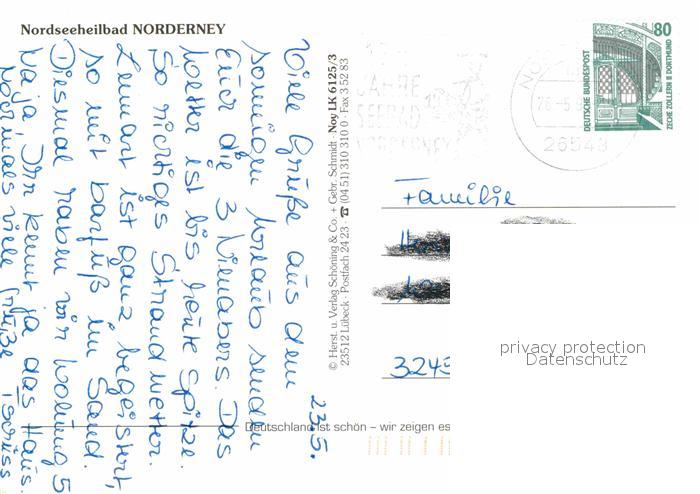 Nordseeheilbad NORDERNEY
23.5.
Viele Grüße aus dem
sonnigen Urlaub senden
Euch die 3 Das
Wetter ist bis heute spitze.
So richtiges Strandwetter.
Lennart ist ganz begeistert,
so mit barfuß im Sand.
Diesmal haben wir Wohnung 5
Naja Ihr kennt ja das Haus.
Nochmals viele Grüße Tschüss
© Herst. u. Verlag Schöning & Co. + Gebr. Schmidt · Noy LK 6125/3
23512 Lübeck · Postfach 24 23 · ☎ (04 51) 310 310 0 · Fax 3 52 83
Deutschland ist schön – wir zeigen es
JAHRE
NORDERNEY
26.-5.
26548
80
DEUTSCHE BUNDESPOST
ZECHE ZOLLERN II DORTMUND
Familie
3249
privacy protection
Datenschutz